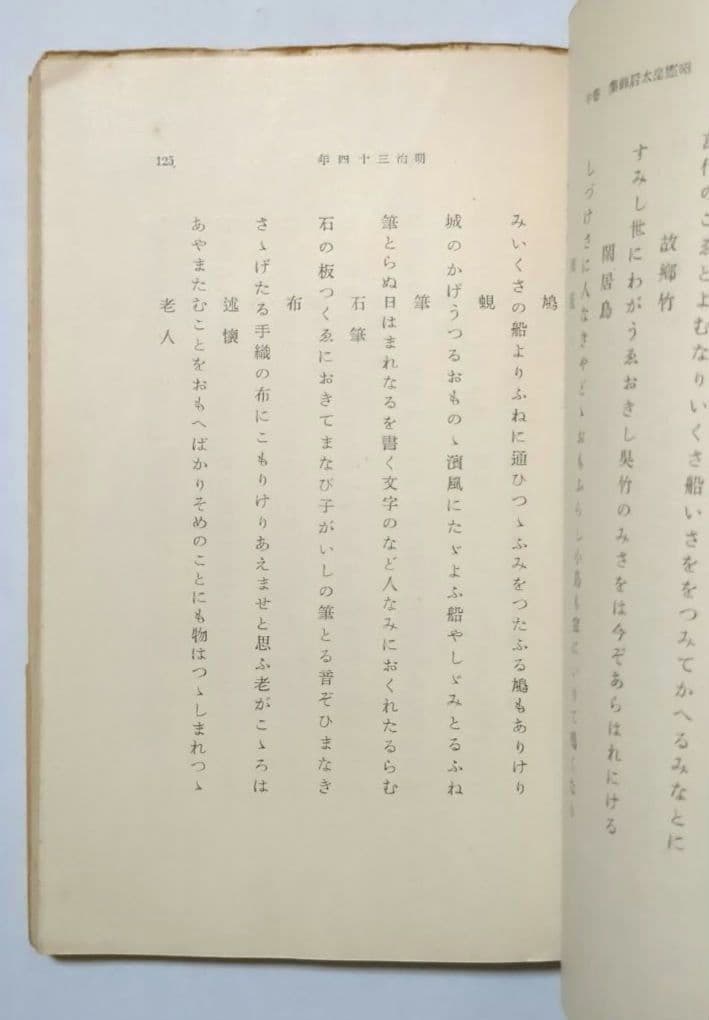 昭憲皇太后御集 卷中
代のこゑとよむなりいくさ船いさををつみてかへるみなとに
故鄕竹
すみし世にわがうゑおきし吳竹のみさをは今ぞあらはれにける
閑居鳥
しづけさに人なきやどゝおもふらし小鳥も窓にいりて鳴くなり
明治三十四年
125
鳩
みいくさの船よりふねに通ひつゝふみをつたふる鳩もありけり
蜆
城のかげうつるおものゝ濱風にたゞよふ船やしゞみとるふね
筆
筆とらぬ日はまれなるを書く文字のなど人なみにおくれたるらむ
石筆
石の板つくゑにおきてまなび子がいしの筆とる音ぞひまなき
布
さゝげたる手織の布にこもりけりあえませと思ふ老がこゝろは
述懷
あやまたむことをおもへばかりそめのことにも物はつゝしまれつゝ
老人